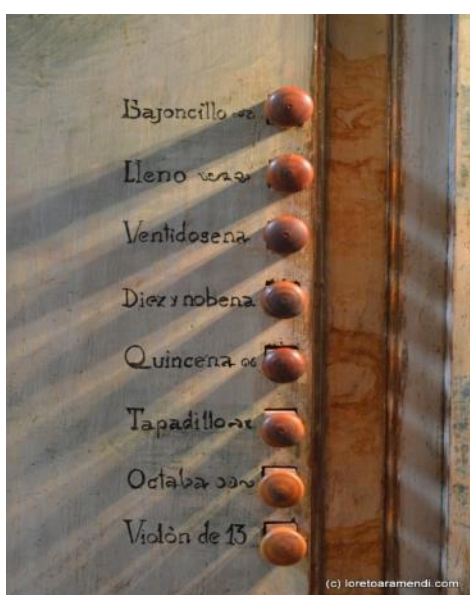 Bajoncillo
Lleno
Ventidosena
Diez y nobena
Quincena
Tapadillo
Octaba
Violòn de 13
(c) loretoaramendi.com